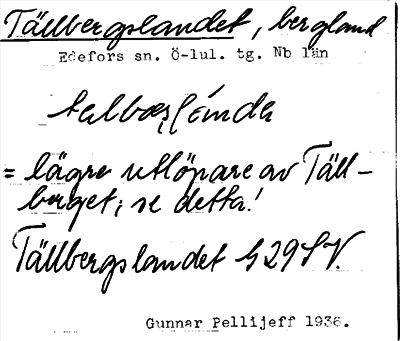 Tällbergslandet, bergland
Edefors sn. Ö-lul. tg. Nb län
= lägre utlöpare av Täll-
berget; se detta!
Tällbergslandet h 29 S V
Gunnar Pellijeff 1936.